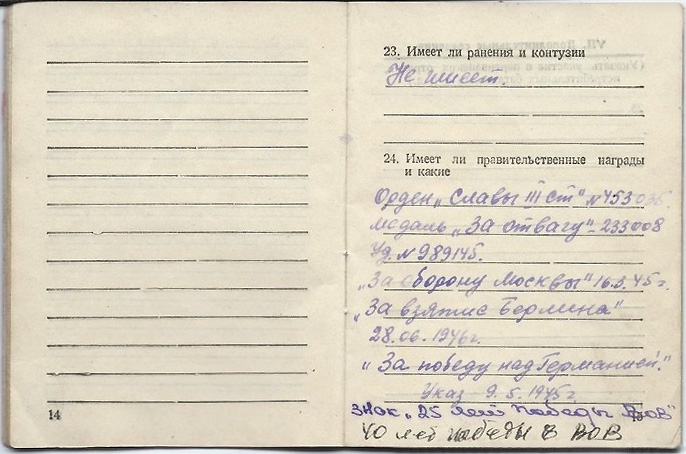 14
23. Имеет ли ранения и контузии
Не имеет.
24. Имеет ли правительственные награды
и какие
Орден „Славы III ст" №453036
медаль „За отвагу"-233008
Уд. №989145.
„За оборону Москвы" 16.3.45г.
„За взятие Берлина"
28.06.1946г.
„За победу над Германией."
Указ 9.5.1945г.
знак „25 лет победы ВОВ"
40 лет победы в ВОВ